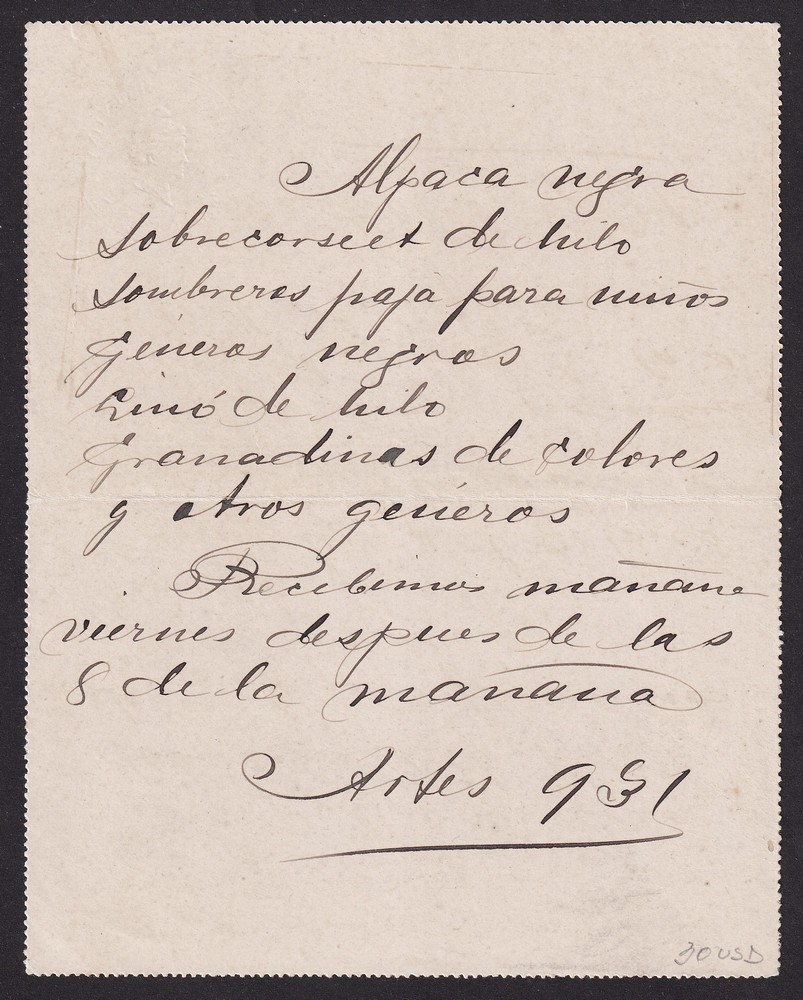 Alpaca negra
Sobrecorseet de hilo
Sombreros paja para niños
Géneros negros
Linó de hilo
Granadinas de colores
y otros géneros
Recibimos mañana
viernes despues de las
8 de la mañana
Artes 931
30 USD